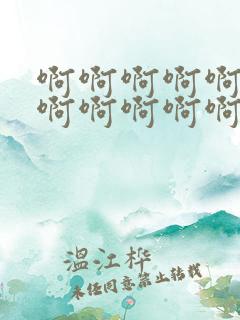 啊啊啊啊啊
啊啊啊啊啊
温江桦
未经同意禁止转载